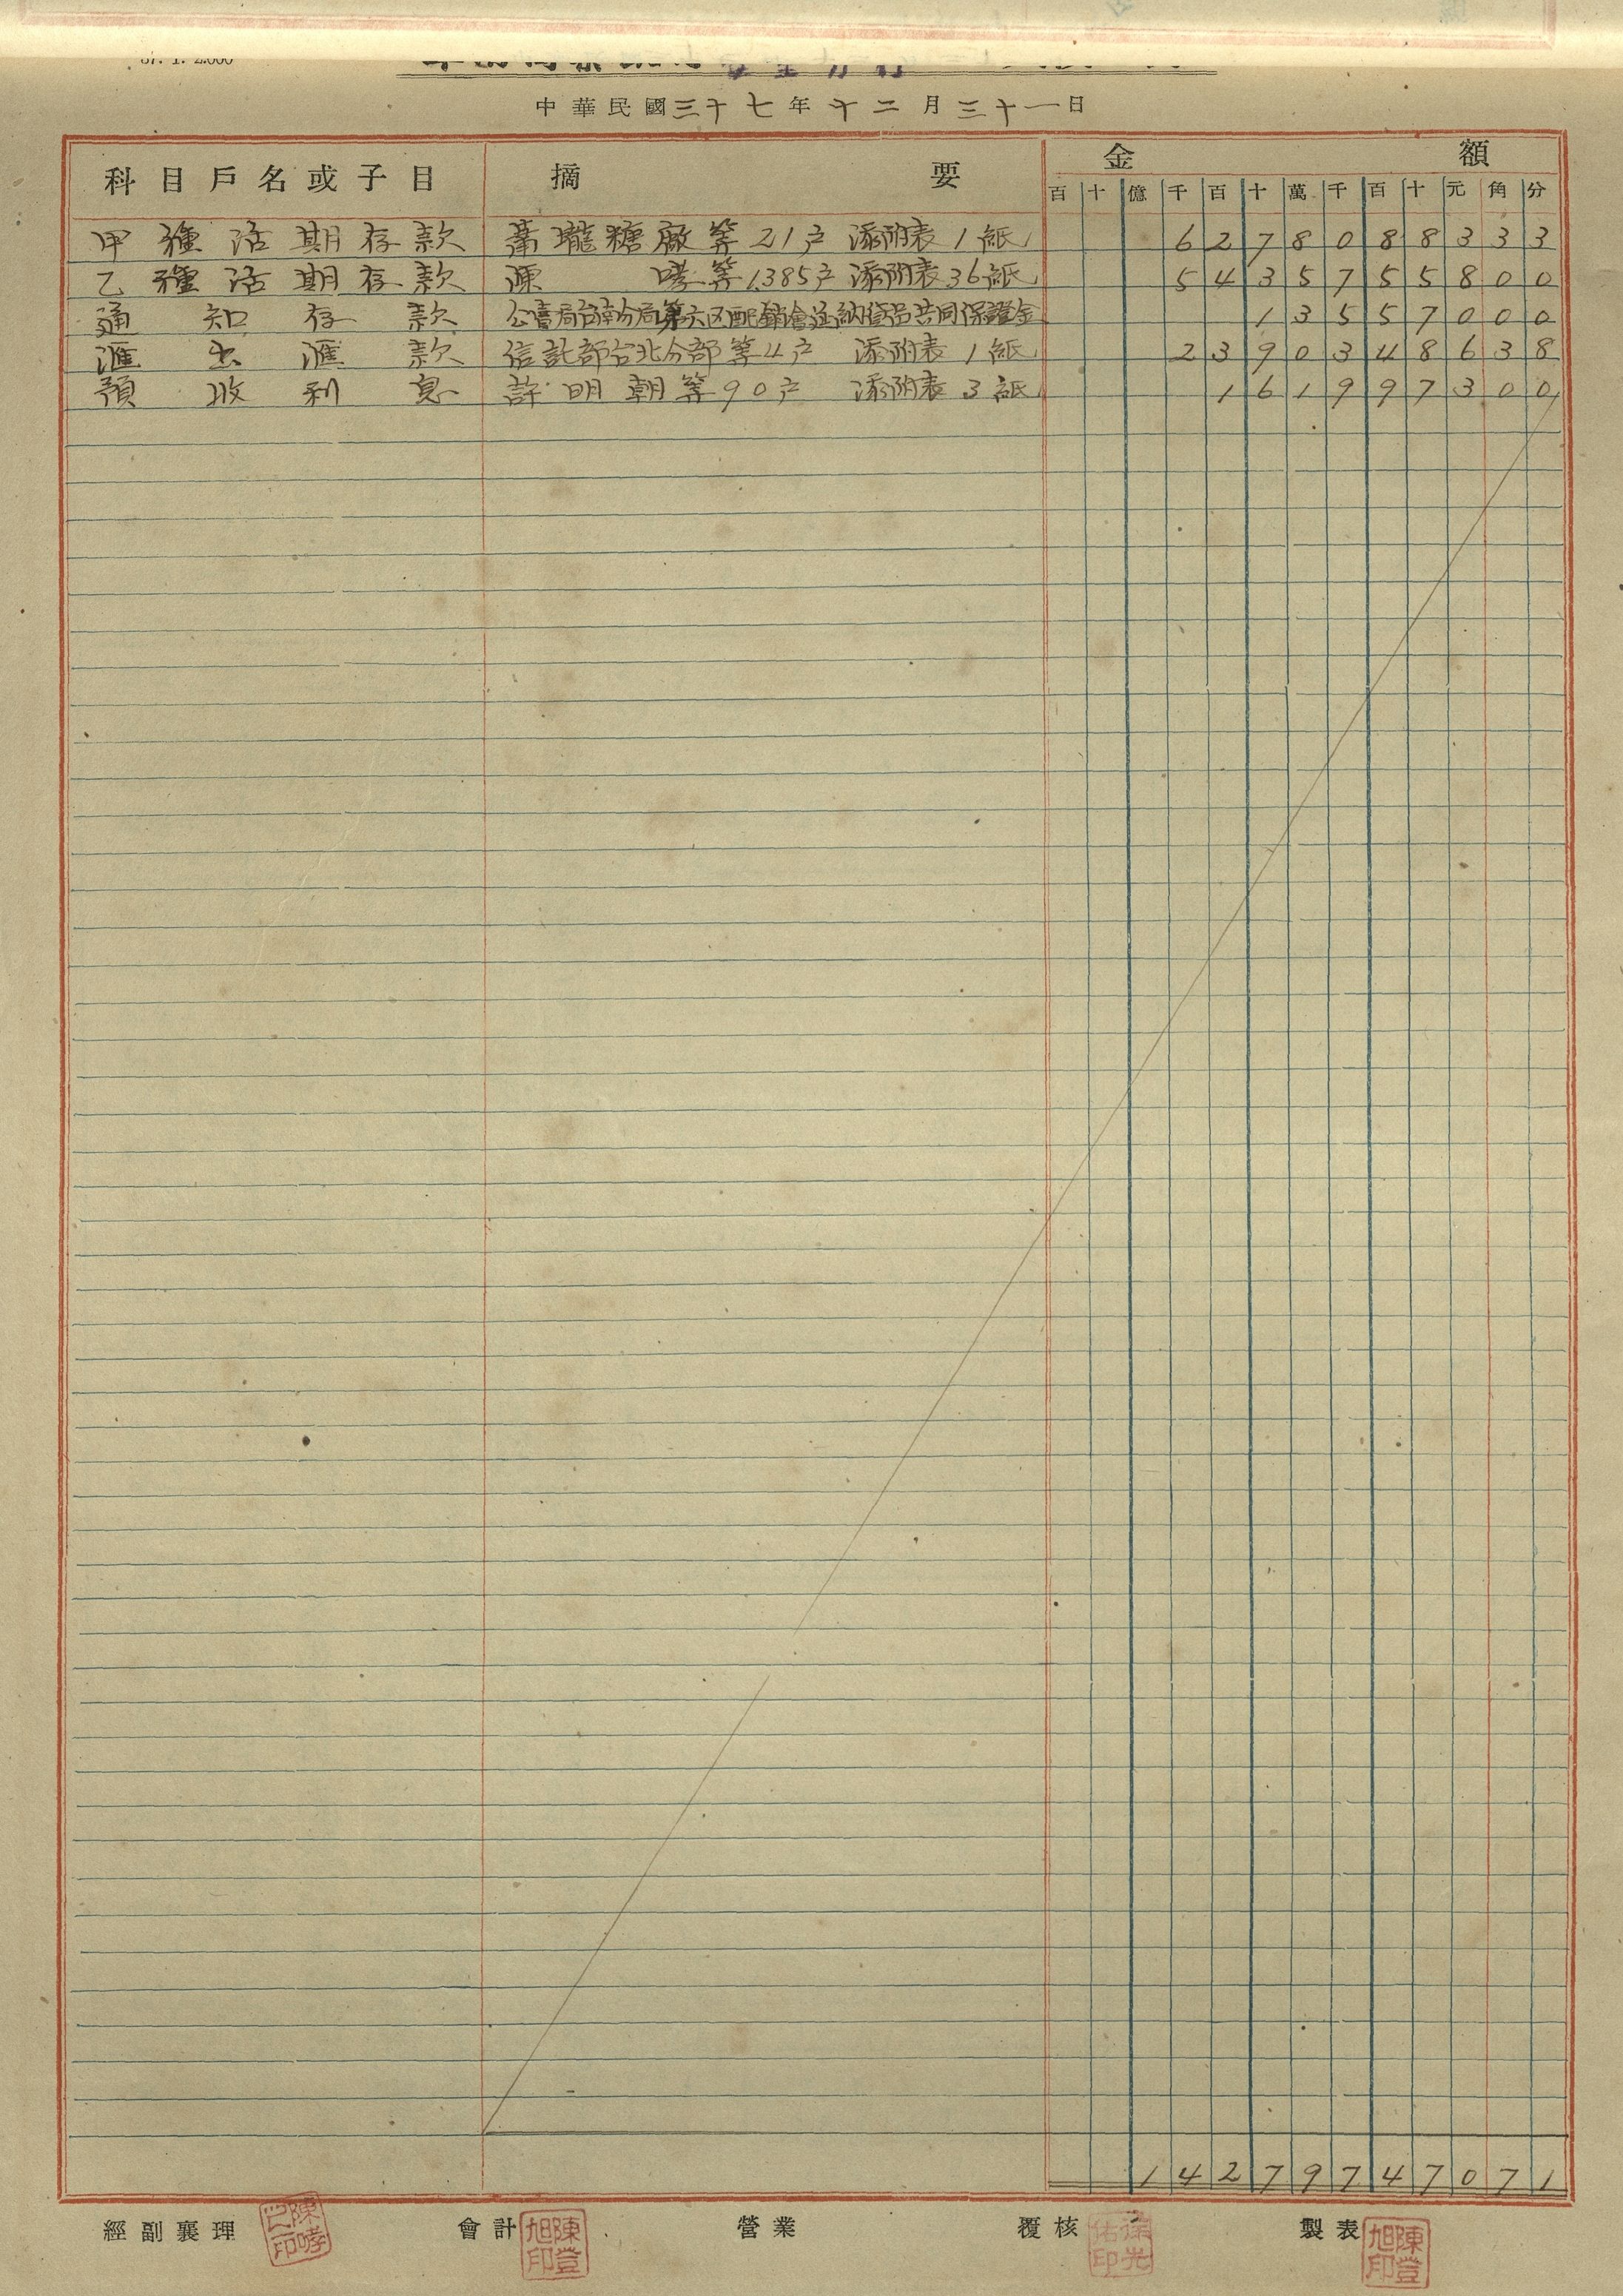 37. 1. 2.000
中華民國三十七年十二月三十一日
科目戶名或子目 摘要 金額
百 十 億 千 百 十 萬 千 百 十 元 角 分
甲種活期存款 蕭壠糖廠等21户 添附表1紙 6 2 7 8 0 8 8 3 3 3
乙種活期存款 陳 哮等1,385户 添附表36紙 5 4 3 5 7 5 5 8 0 0
通知存款 公賣局台南分局第六区配銷會 共同保證金 1 3 5 5 7 0 0 0
滙出滙款 信託部台北分部等4户 添附表1紙 2 3 9 0 3 4 8 6 3 8
預收利息 許明朝等90户 添附表3紙 1 6 1 9 9 7 3 0 0
1 4 2 7 9 7 4 7 0 7 1
經副襄理 會計 營業 覆核 製表
陳哮已印 陳登旭印 陳登旭印